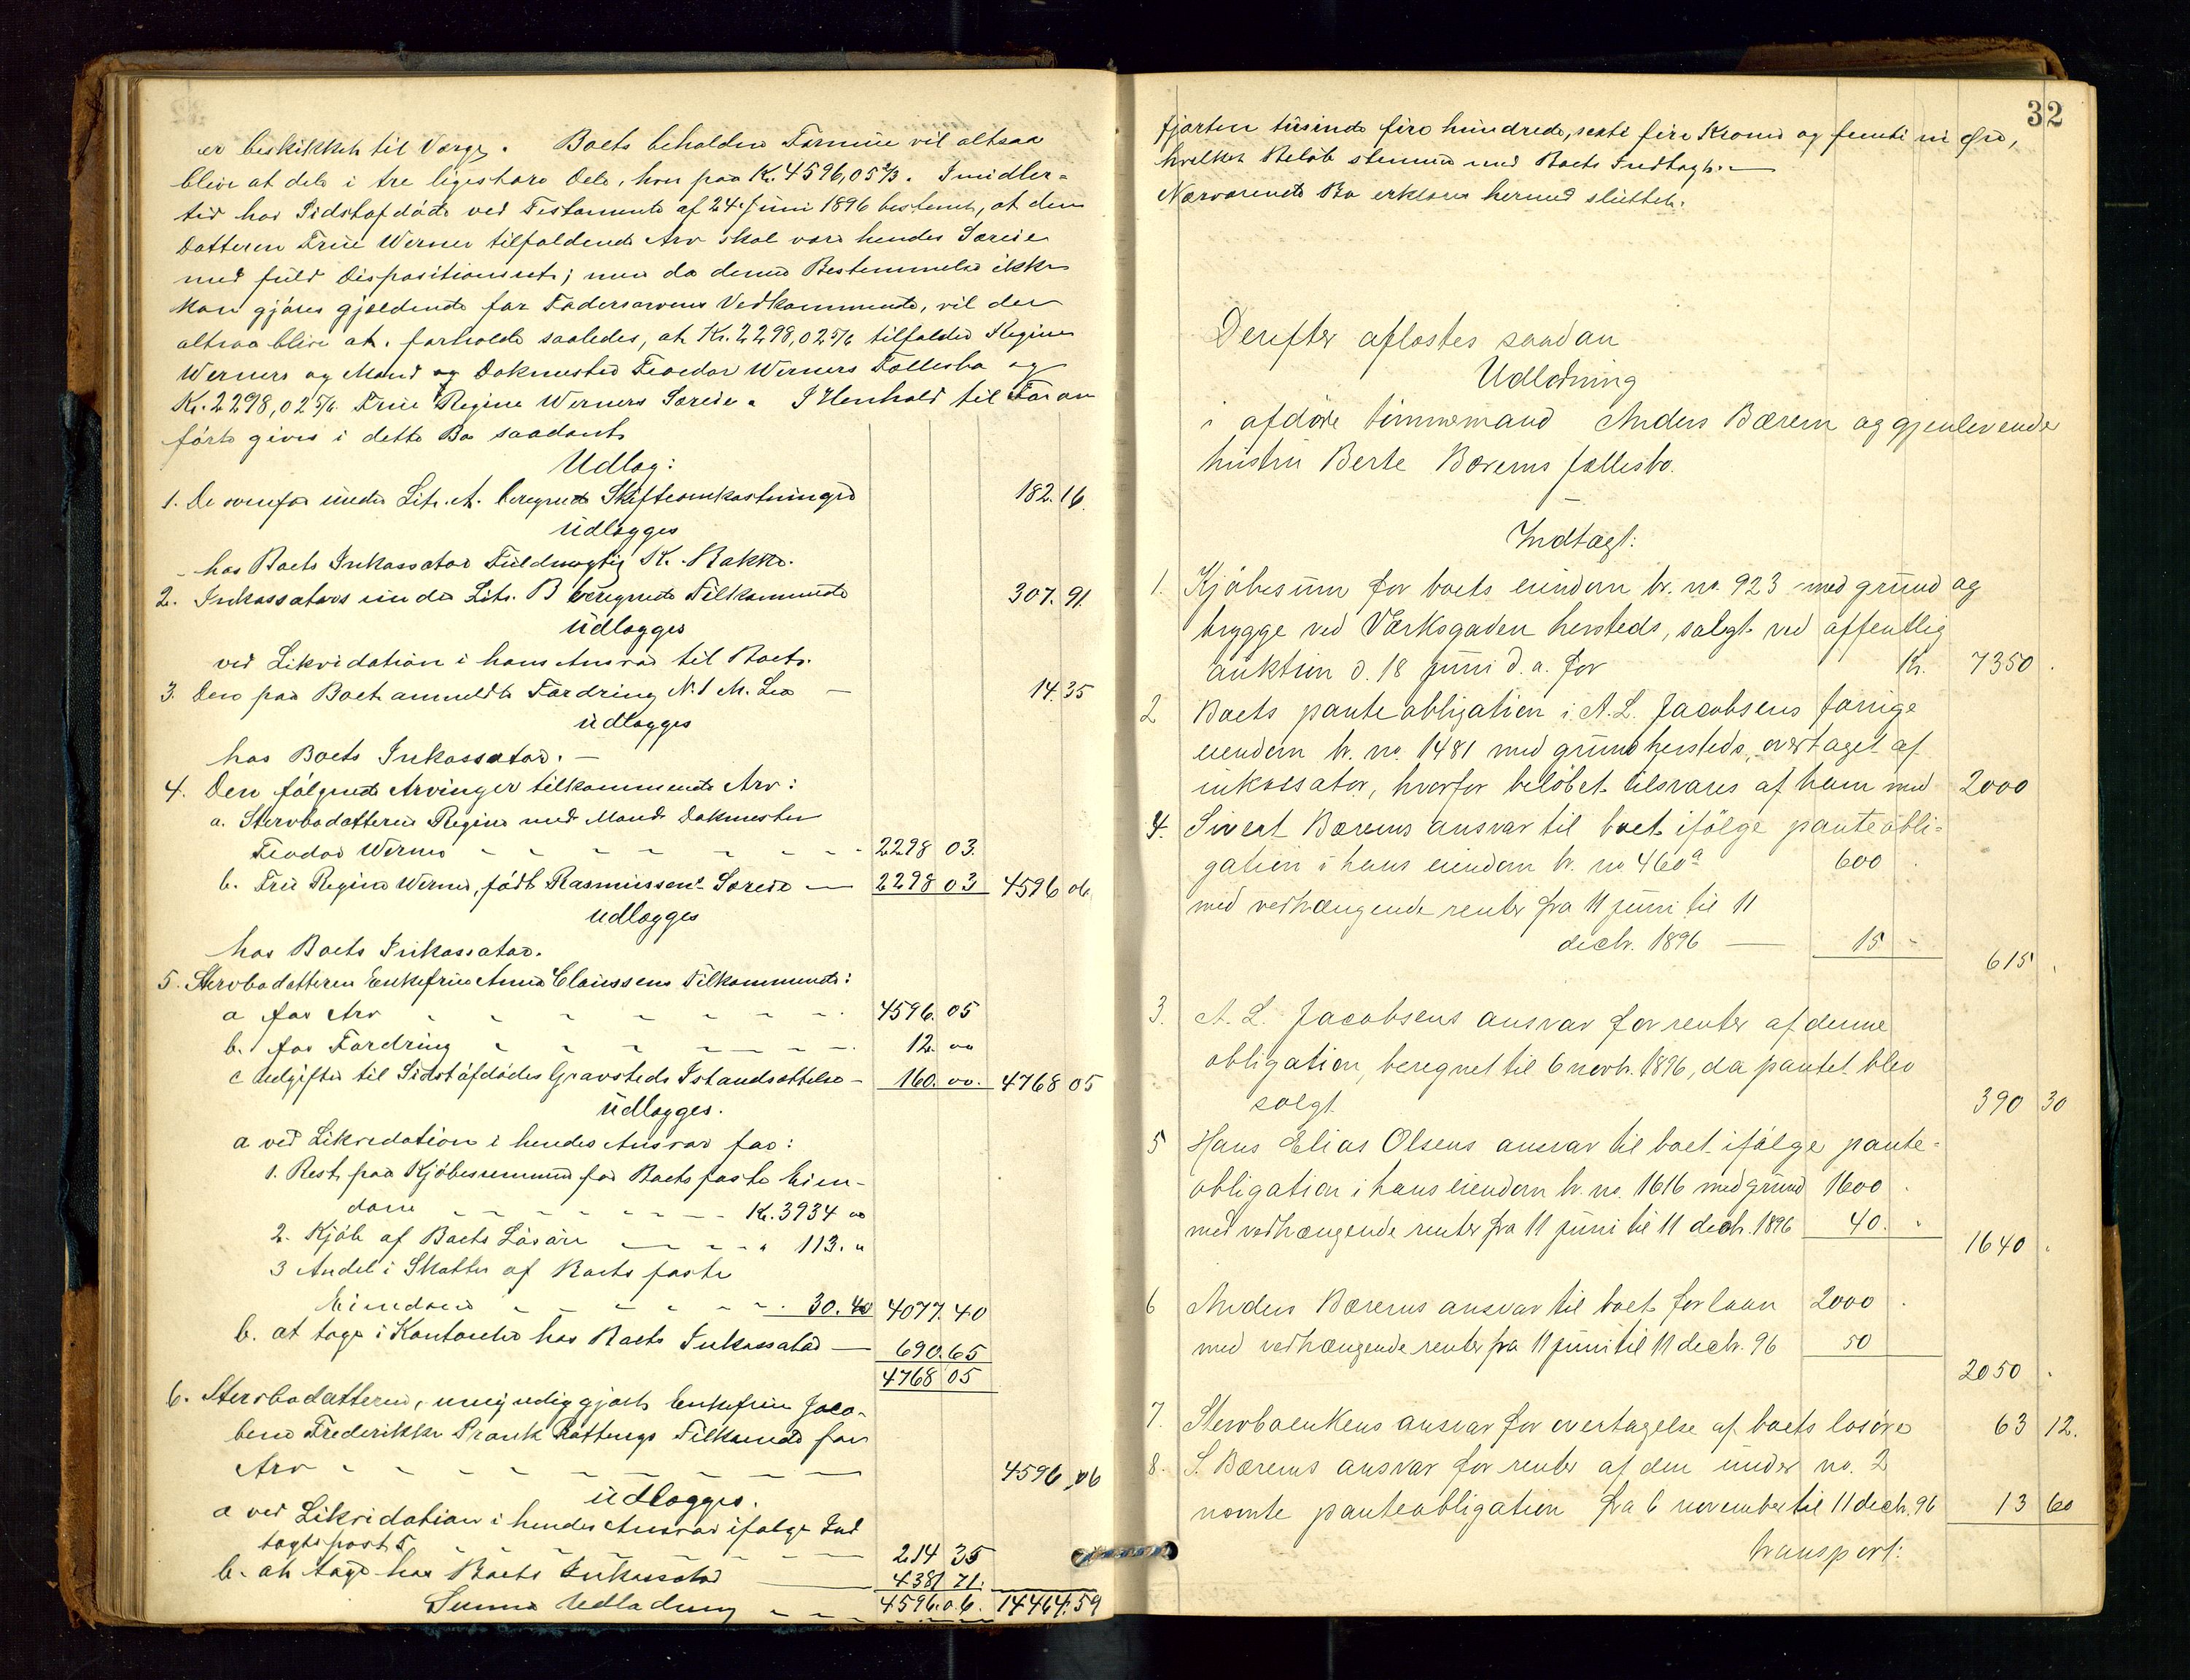 er beskikket til Verge. Boets beholdne Formue vil altsaa
blive at dele i tre ligestore Dele, hver paa Kr. 4596,05 2/3. Imidler-
tid har Sidstafdøde ved Testamente af 24 Juni 1896 bestemt, at den
Datteren Frue Werner tilfaldende Arv skal være hendes Særeie
med fuld Dispositionsret; men da denne Bestemmelse ikke
kan gjøres gjældende for Fædrearvens Vedkommende, vil der
altsaa blive at forholde saaledes, at Kr. 2298,02 5/6 tilfalder Regine
Werners og Mand og Dokmester Feodor Werners Fællesbo og
Kr. 2298,02 5/6 Frue Regine Werners Særeie. I Henhold til Foran
førte gives i dette Bo saadant
Udlæg:
1. De ovenfor under Litr. A. beregnede Skifteomkostninger 182.16.
udlægges
- hos Boets Inkassator Fuldmægtig K. Bakke.
2. Inkassators under Litr. B beregnede Tilkommende 307.91.
udlægges
ved Likvidation i hans Ansvar til Boet.
3. Den paa Boet anmeldte Fordring N. 1 M. Lea — 14.35
udlægges
hos Boets Inkassator. —
4. Den følgende Arvinger tilkommende Arv:
a. Stervbodatteren Regine med Mand Dokmester
Feodor Werner - - - - - - 2298 03.
b. Frue Regine Werner, født Rasmussens Særeie — 2298 03 4596 06
udlægges
hos Boets Inkassator.
5. Stervbodatteren Enkefrue Anna Claussens Tilkommende:
a for Arv - - - - - - 4596. 05
b. for Fordring - - - - - - 12. oo
c Udgifter til Sidstafdødes Gravsteds Istandsættelse - 160. oo. 4768 05
udlægges.
a ved Likvidation i hendes Ansvar for:
1. Rest paa Kjøbesummen for Boets faste Eien-
dom - - - - - - Kr. 3934 oo
2. Kjøb af Boets Løsøre — - - " 113. "
3 Andel i Skatter af Boets faste
Eiendom - - - - - 30. 40 4077. 40
b. at tage i Kontanter hos Boets Inkassator — 690.65
4768 05
6. Stervbodatteren, umyndiggjorte Enkefrue Jaco-
bine Frederikke Prank Tilkommende for
Arv - - - - - - — — — 4596,06
udlægges.
a ved Likvidation i hendes Ansvar ifølge Ind
tægtspost 5 - - - - - — 214 35
b. at tage hos Boets Inkassator — 4381 71.
Summa Udlodning - - - 4596.06. 14464.59
32
fjorten tusinde fire hundrede, seksti fire Kroner og femti ni Øre,
hvilket Beløb stemmer med Boets Indtægt. —
Nærværende Bo erklæres hermed sluttet.
Derefter aflæstes saadan
Udlodning
i afdøde tømmermand Anders Bærem og gjenlevende
hustru Berte Bærems fællesbo.
—
Indtægt:
1. Kjøbesum for boets eiendom br. no. 923 med grund og
brygge ved Værksgaden hersteds, solgt ved offentlig
auktion d. 18 juni d. a. for Kr. 7350.
2 Boets panteobligation i A. L. Jacobsens forrige
eiendom br. no. 1481 med grund hersteds, overtaget af
inkassator, hvorfor beløbet tilsvares af ham med 2000
4. Sivert Bærems ansvar til boet ifølge panteobli=
gation i hans eiendom br. no 460a 600
med vedhængende renter fra 11 juni til 11
decbr. 1896 — 15 - 615.
3. A. L. Jacobsens ansvar for renter af denne
obligation, beregnet til 6 novbr. 1896, da pantet blev
solgt 390 30
5 Hans Elias Olsens ansvar til boet ifølge pante=
obligation i hans eiendom br. no. 1616 med grund 1600.
med vedhængende renter fra 11 juni til 11 decbr. 1896 40. " 1640.
6 Anders Bærems ansvar til boet for laan 2000.
med vedhængende renter fra 11 juni til 11 decbr. 96 50 2050.
7. Stervboenkens ansvar for overtagelse af boets løsøre 63 12.
8. S. Bærems ansvar for renter af den under no. 2
nævnte panteobligation fra 6 november til 11 decbr. 96 13 60
transport: